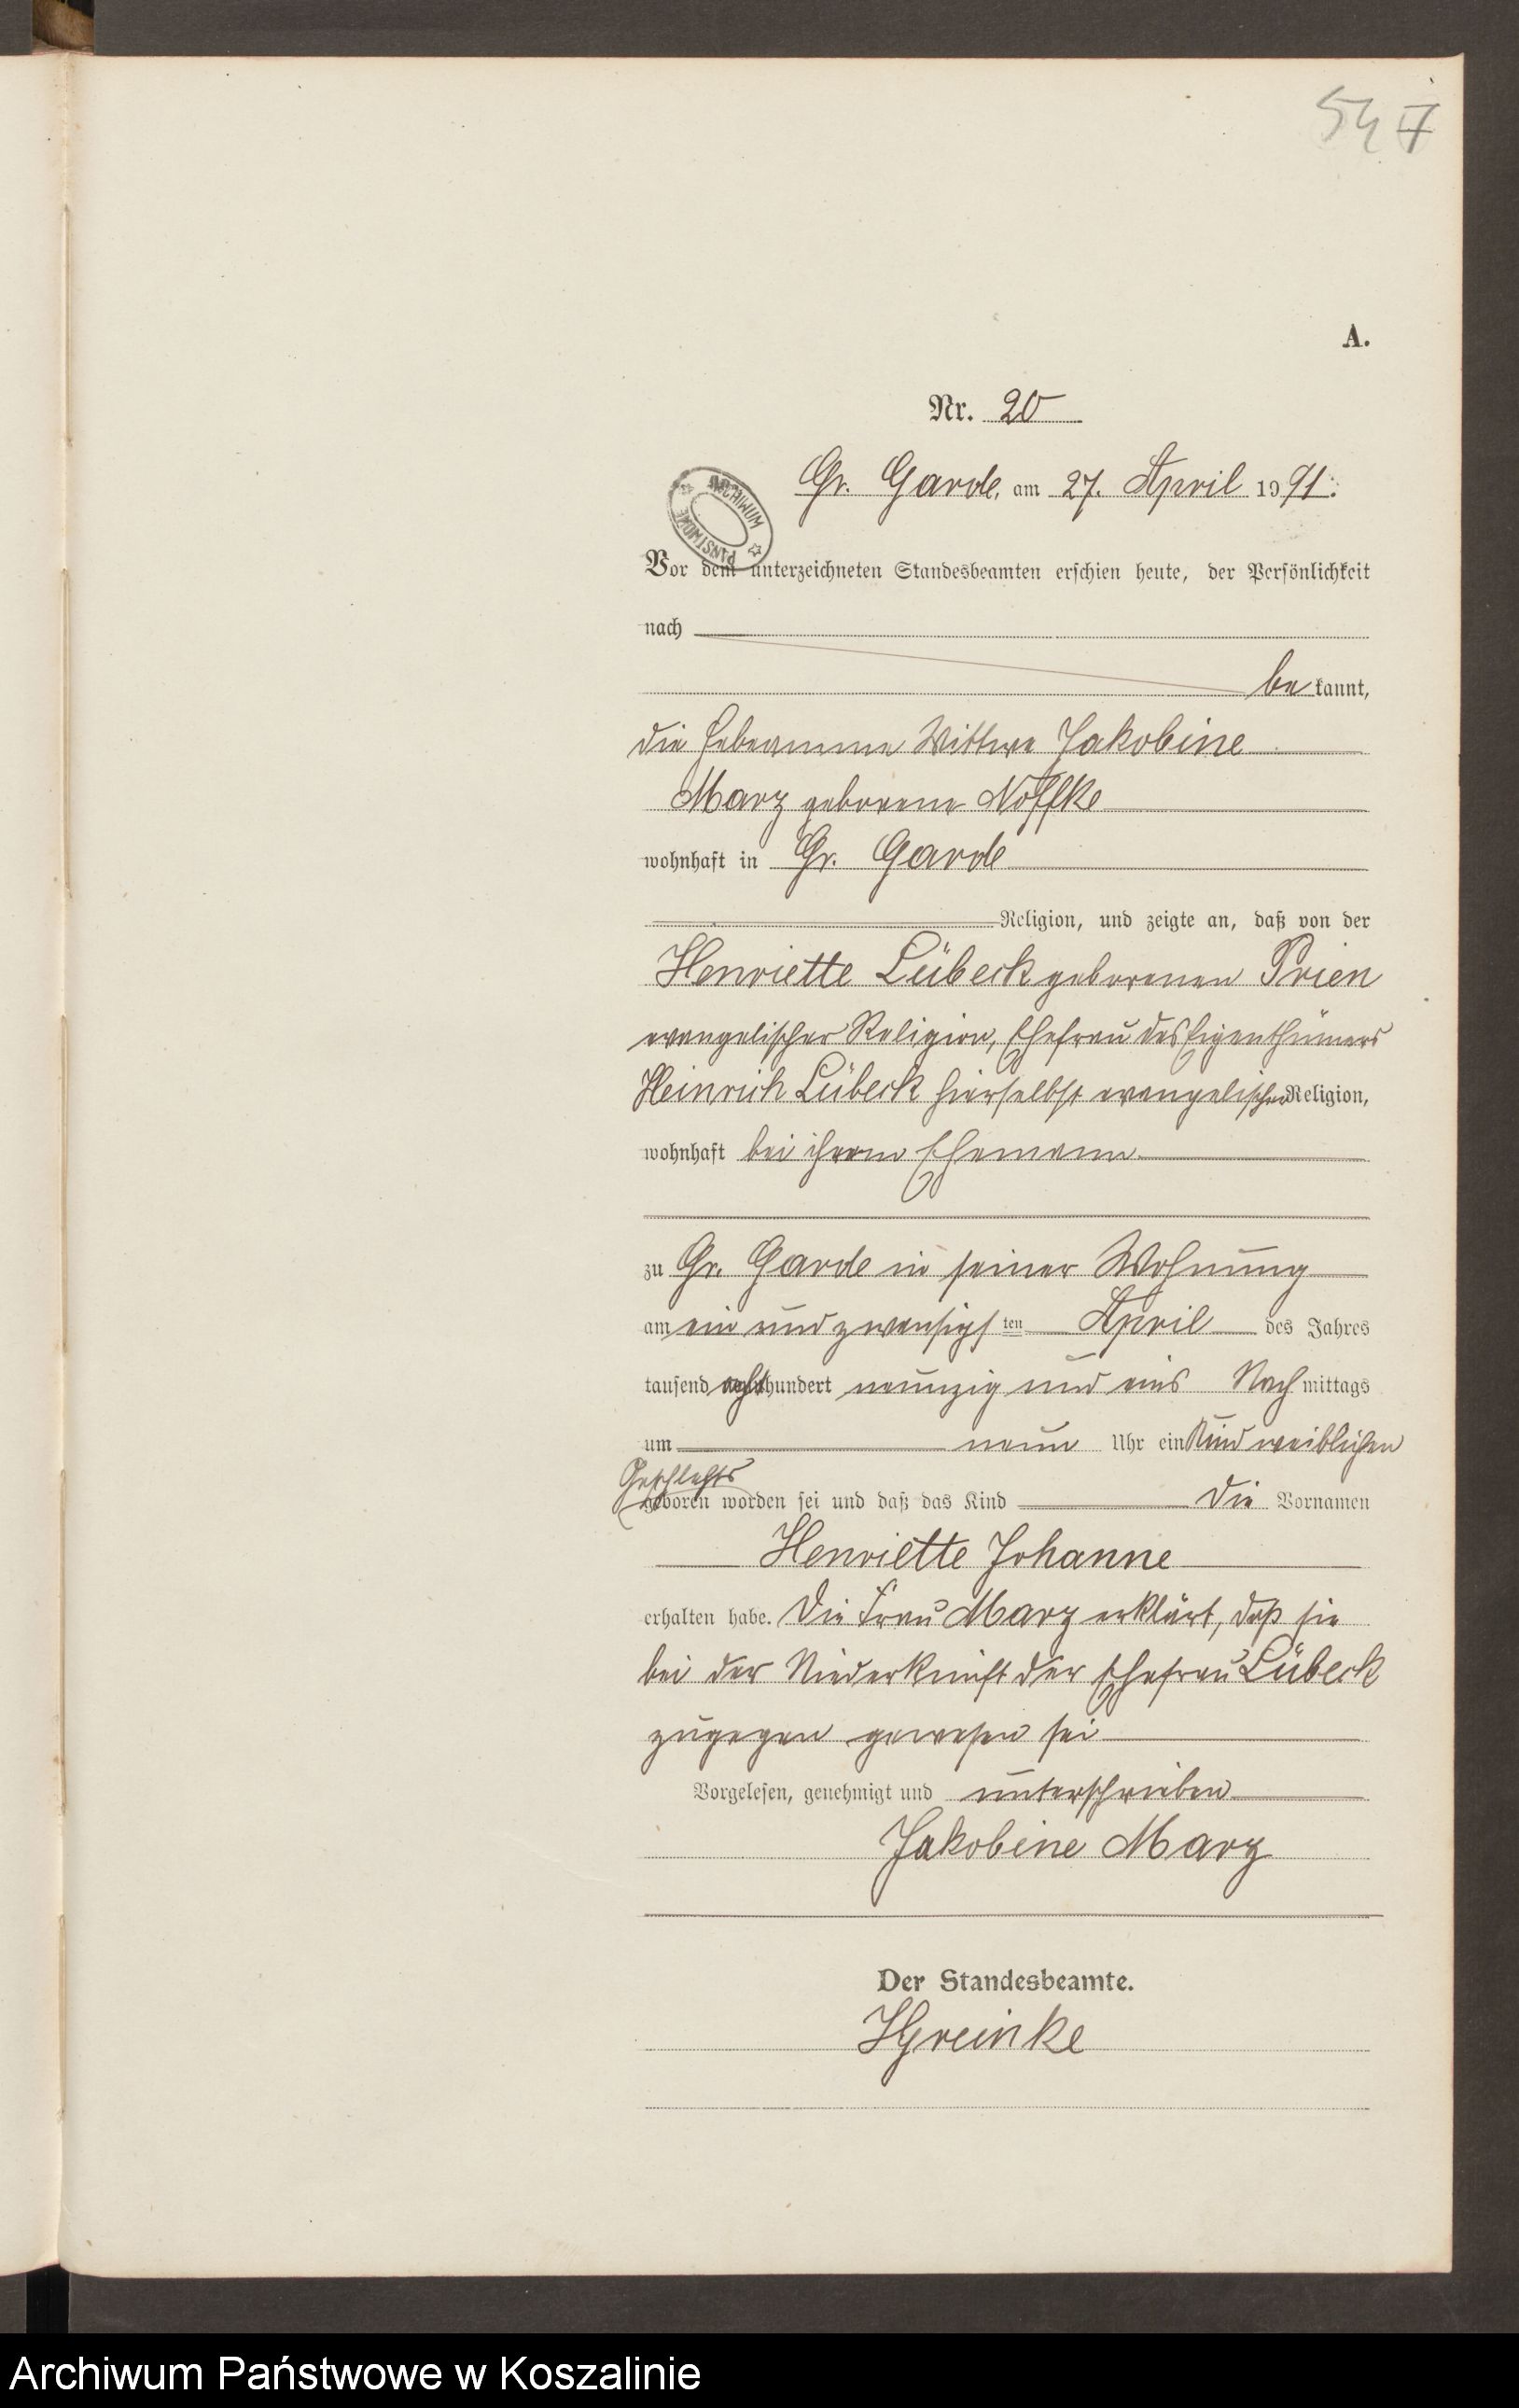 54 7
A.
Nr. 20
Gr. Garde, am 27. April 1991.
ARCHIWUM PAŃSTWOWE
Vor dem unterzeichneten Standesbeamten erschien heute, der Persönlichkeit
nach
be kannt,
die Hebeamme Wittwe Jakobine
Marz geborene Noffke
wohnhaft in Gr. Garde
Religion, und zeigte an, daß von der
Henriette Lübeck geborenen Prien
evangelischer Religion, Ehefrau des Eigenthümers
Heinrich Lübeck hierselbst evangelischer Religion,
wohnhaft bei ihrem Ehemann
zu Gr. Garde in seiner Wohnung
am ein und zwanzigsten April des Jahres
tausend achthundert neunzig und eins Nach mittags
um neun Uhr ein Kind weiblichen
Geschlechts
geboren worden sei und daß das Kind die Vornamen
Henriette Johanne
erhalten habe. Die Frau Marz erklärt, daß sie
bei der Niederkunft der Ehefrau Lübeck
zugegen gewesen sei
Vorgelesen, genehmigt und unterschrieben
Jakobine Marz
Der Standesbeamte.
HGreinke
Archiwum Państwowe w Koszalinie